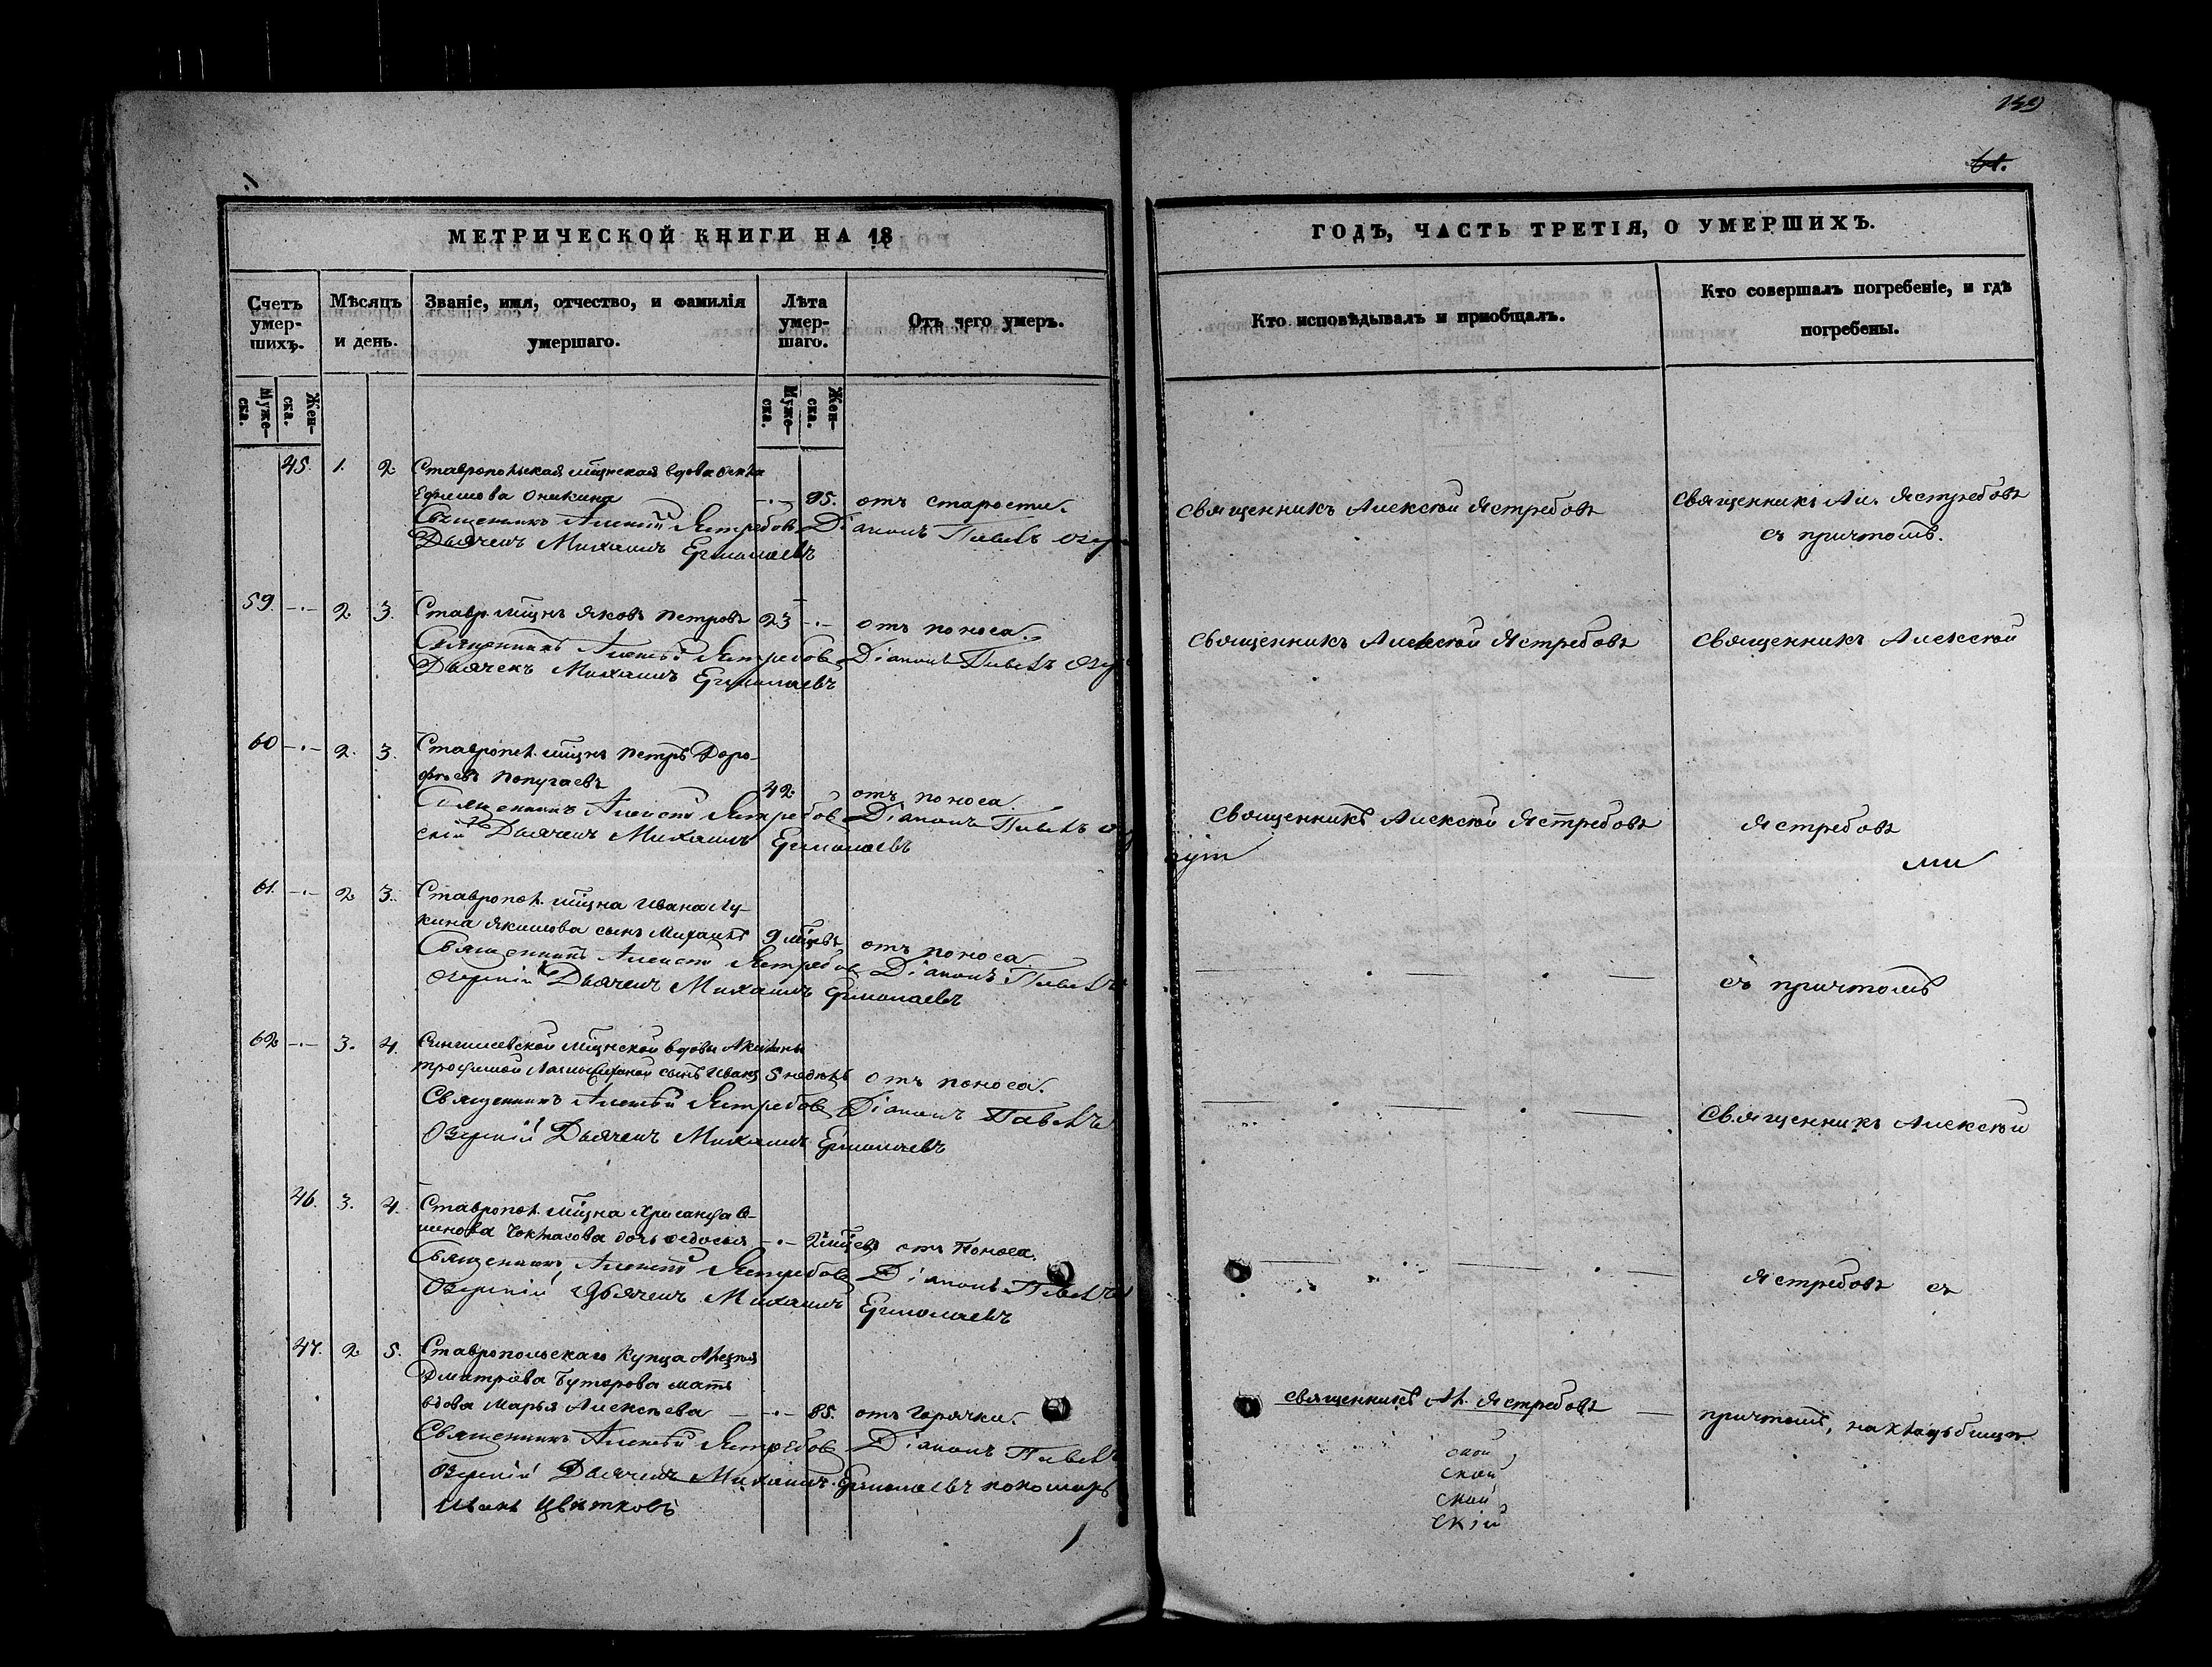 139
61.
МЕТРИЧЕСКОЙ КНИГИ НА 18
ГОДЪ, ЧАСТЬ ТРЕТІЯ, О УМЕРШИХЪ.
Счетъ умер-шихъ.
Муже-ска.
Жен-ска.
Мѣсяцъ и день.
Званіе, имя, отчество, и фамилія умершаго.
Лѣта умер-шаго.
Муже-ска.
Жен-ска.
Отъ чего умеръ.
Кто исповѣдывалъ и пріобщалъ.
Кто совершалъ погребеніе, и гдѣ погребены.
45. 1. 2. Ставропольская мѣщнская вдова
Ефимова Оникина —·— 95. отъ старости.
Священникъ Алексѣй Ястребовъ Діаконъ Павелъ
Дьячекъ Михаилъ Ермолаевъ
Священникъ Алексѣй Ястребовъ
Священникъ Ал. Ястребовъ
съ причтомъ.
59. —·— 2. 3. Ставр. мѣщнъ Яковъ Петровъ 23 —·— отъ поноса.
Священникъ Алексѣй Ястребовъ Діаконъ Павелъ
Дьячекъ Михаилъ Ермолаевъ
Священникъ Алексѣй Ястребовъ
Священникъ Алексѣй
60 —·— 2. 3. Ставропол. мѣщнъ Петръ Доро-
фѣевъ Попугаевъ 42 отъ поноса.
Священникъ Алексѣй Ястребовъ Діаконъ Павелъ
скій Дьячекъ Михаилъ Ермолаевъ
Священникъ Алексѣй Ястребовъ
Ястребовъ
ми
61. —·— 2 3. Ставропол. мѣщна Ивана Лу-
кина Якимова сынъ Михаилъ 9 мѣцевъ отъ поноса
Священникъ Алексѣй Ястребовъ Діаконъ Павелъ
Озерскій Дьячекъ Михаилъ Ермолаевъ
съ причтомъ
62 —·— 3. 4. мѣщнской вдовы
сынъ Иванъ 5 недѣль отъ поноса.
Священникъ Алексѣй Ястребовъ Діаконъ Павелъ
Озерскій Дьячекъ Михаилъ Ермолаевъ
Священникъ Алексѣй
46. 3. 4. Ставропол. мѣщна Хрисанфа
дочь Федосья —·— 2 мѣцевъ отъ поноса.
Священникъ Алексѣй Ястребовъ Діаконъ Павелъ
Озерскій Дьячекъ Михаилъ Ермолаевъ
Ястребовъ съ
47. 2 5. Ставропольскаго купца
Дмитріева Буторова мать
вдова Марья Алексѣева —·— 85. отъ горячки.
Священникъ Алексѣй Ястребовъ Діаконъ Павелъ
Озерскій Дьячекъ Михаилъ Ермолаевъ пономарь
Иванъ Цвѣтковъ
Священникъ Ал. Ястребовъ
причтомъ, на кладьбищѣ.
ской
ской
ской
скій